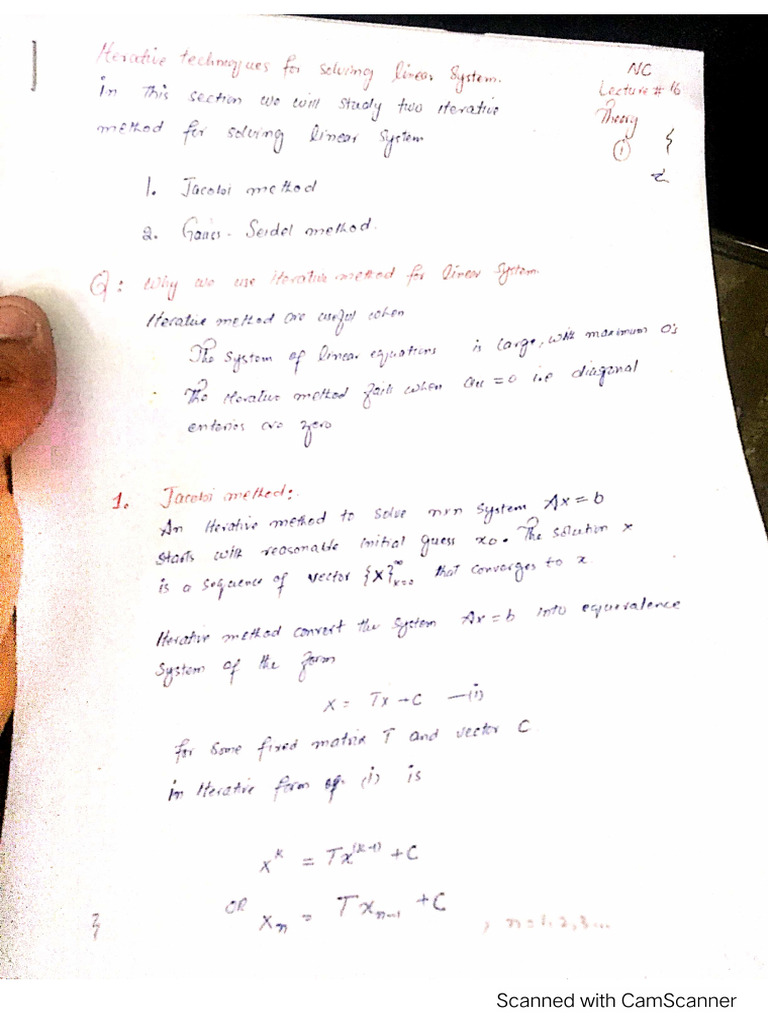 Iterative techniques for solving linear System.
NC
Lecture # 16
Theory
1
in this section we will study two iterative
method for solving linear system
1. Jacobi method
2. Gauss - Seidel method.
Q: Why we use iterative method for linear System.
Iterative method are useful when
The System of linear equations is large, with maximum 0's
The iterative method fails when aii = 0 i.e diagonal
enteries are zero
1. Jacobi method:
An Iterative method to solve nxn System Ax = b
starts with reasonable initial guess x0. The solution x
is a sequence of vector {X}∞x=0 that converges to x.
Iterative method convert the System Ax = b into equevalence
System of the form
X = Tx - C —(i)
for some fixed matrix T and vector C
in Iterative form eq. (i) is
x^k = Tx^(k-1) + C
OR
Xn = Txn-1 + C , n = 1, 2, 3...
Scanned with CamScanner